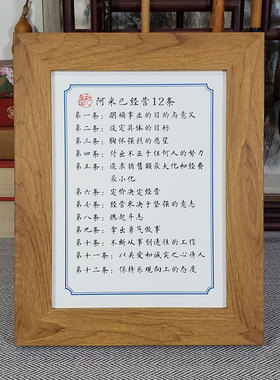 阿米巴经营12条
第一条：明确事业的目的与意义
第二条：设定具体的目标
第三条：胸怀强烈的愿望
第四条：付出不亚于任何人的努力
第五条：追求销售额最大化和经费
最小化
第六条：定价决定经营
第七条：经营取决于坚强的意志
第八条：燃起斗志
第九条：拿出勇气做事
第十条：不断从事创造性的工作
第十一条：以关爱和诚实之心待人
第十二条：保持乐观向上的态度